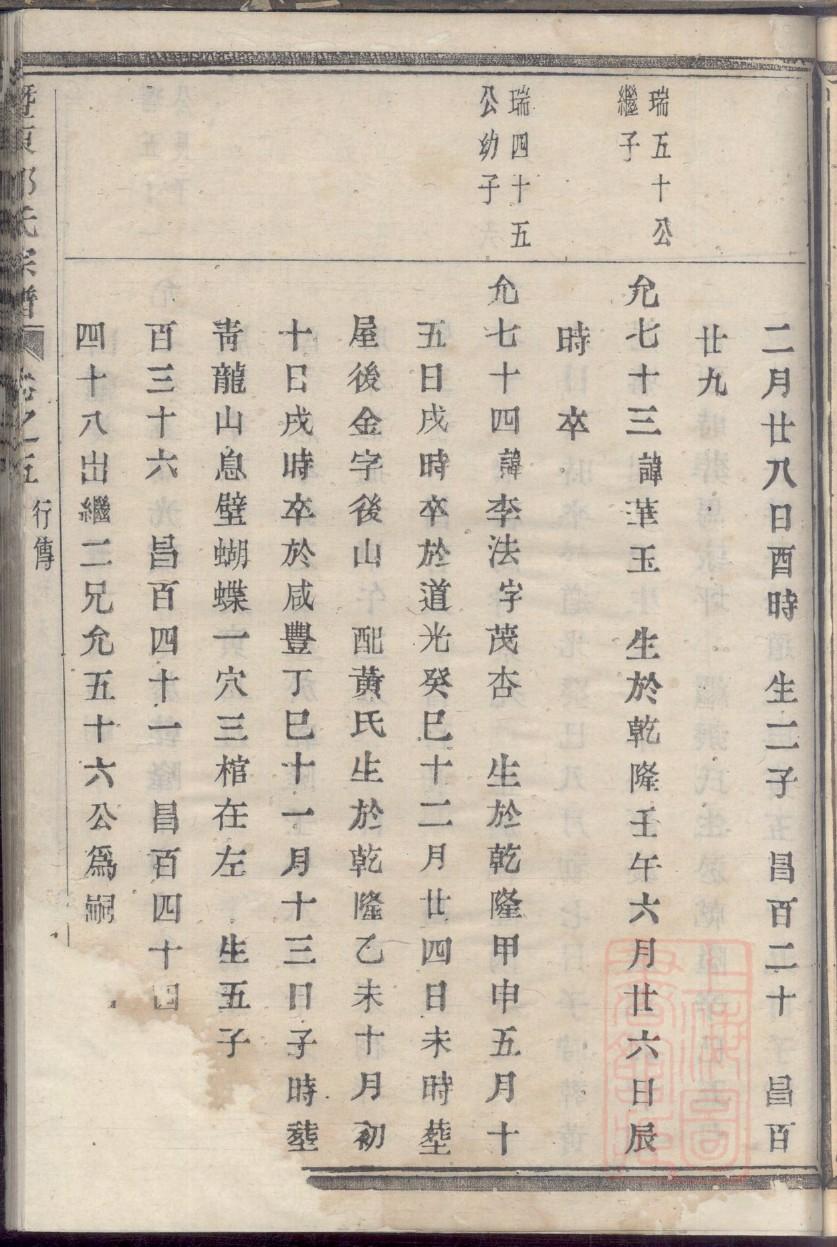 二月廿八日酉時 生二子 昌百二十 昌百
廿九
瑞五十公
繼子
允七十三諱華玉 生於乾隆壬午六月廿六日辰
時卒
瑞四十五
公幼子
允七十四諱李法字茂杏 生於乾隆甲申五月十
五日戌時卒於道光癸巳十二月廿四日未時塟
屋後金字後山 配黃氏生於乾隆乙未十月初
十日戌時卒於咸豐丁巳十一月十三日子時塟
靑龍山息壁蝴蝶一穴三棺在左 生五子
百三十六 昌百四十一 昌百四十四
四十八出繼二兄允五十六公爲嗣
暨東 氏宗譜 卷之五 行傳